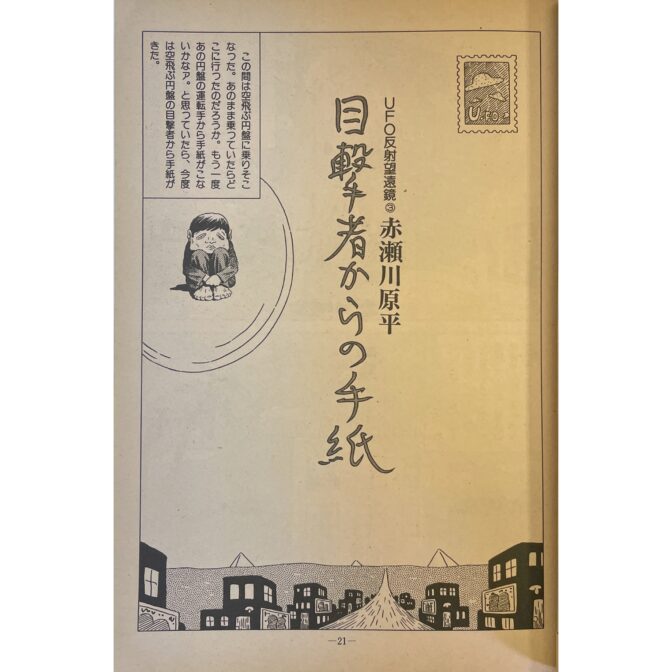 UFO
UFO反射望遠鏡③赤瀬川原平
目撃者からの手紙
この間は空飛ぶ円盤に乗りそこ
なった。あのまま乗っていたらど
こに行つたのだろうか。もう一度
あの円盤の運転手から手紙がこな
いかなァ。と思っていたら、今度
は空飛ぶ円盤の目撃者から手紙が
きた。
—21—